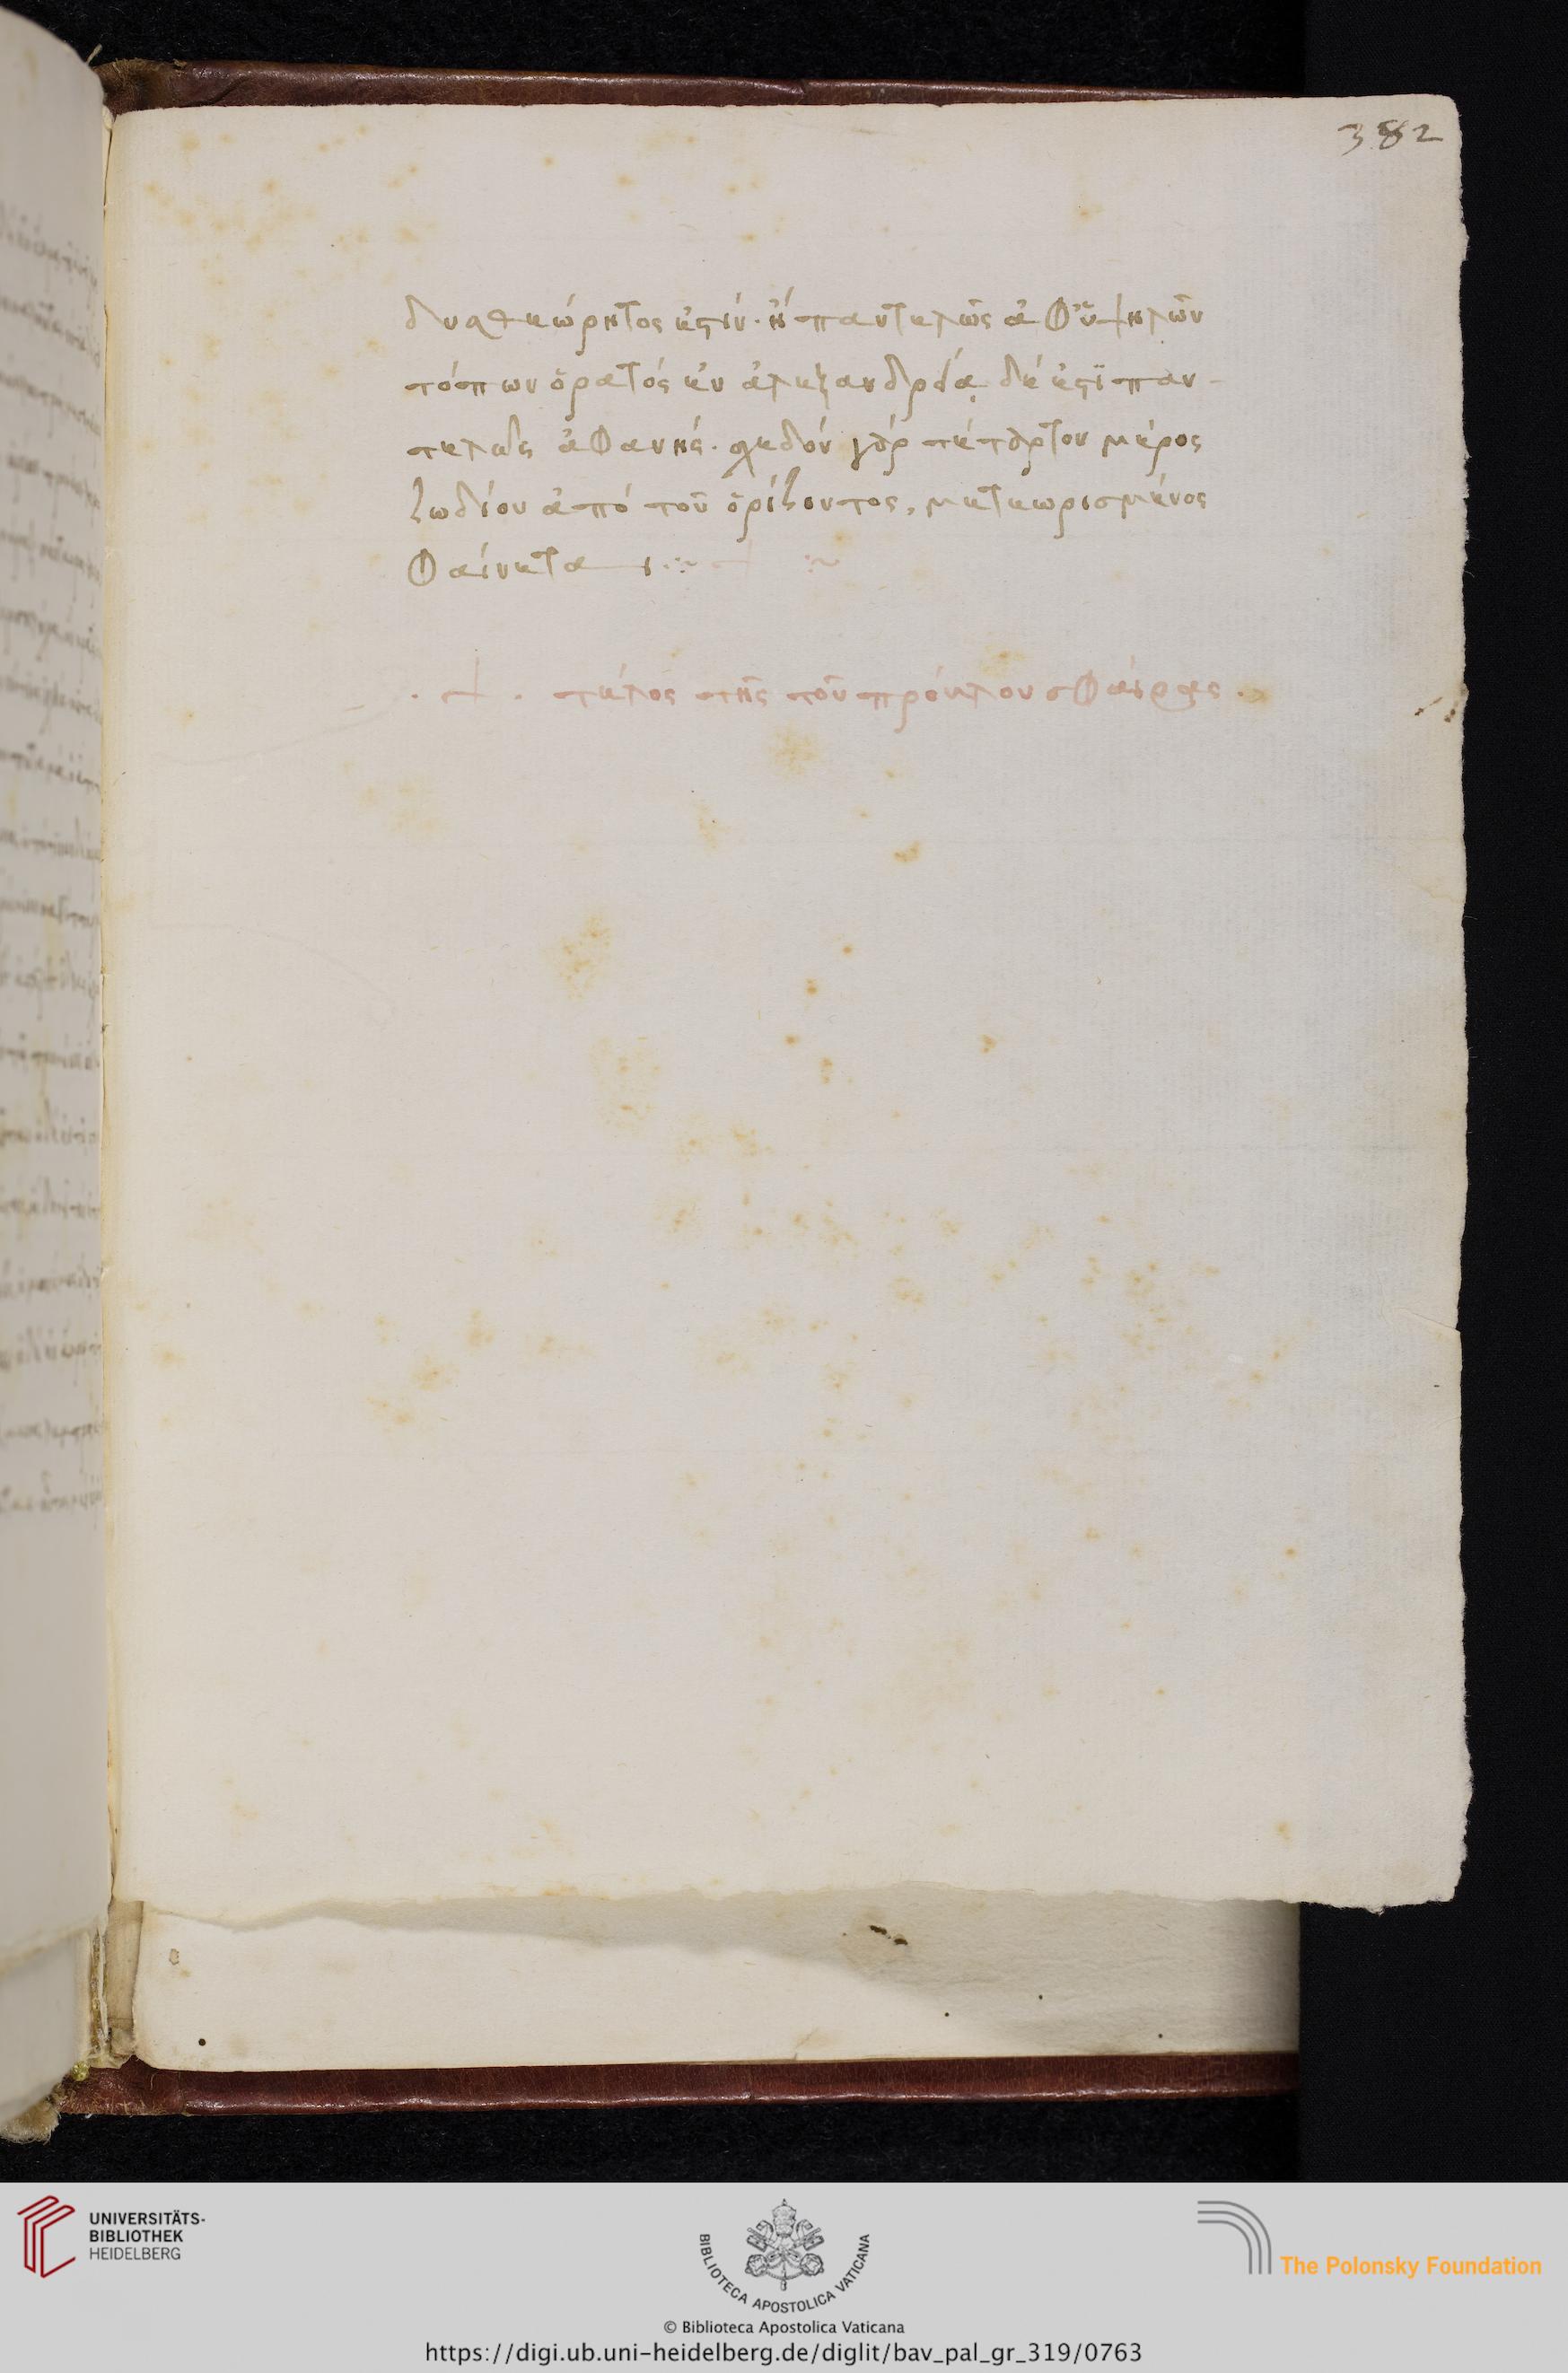 382
δυσθεώρητός ἐστιν· ἢ παντελῶς ἀφ' ὑψηλῶν
τόπων ὁρατός ἐν ἀλεξανδρεία δέ ἐστὶ παν-
τελῶς ἀφανής. σχεδόν γὰρ τέταρτον μέρος
ζωδίου ἀπό τοῦ ὁρίζοντος, μετεωρισμένος
φαίνεται
τέλος τῆς τοῦ πρόκλου σφαίρας.
UNIVERSITÄTS-
BIBLIOTHEK
HEIDELBERG
BIBLIOTECA APOSTOLICA VATICANA
The Polonsky Foundation
© Biblioteca Apostolica Vaticana
https://digi.ub.uni-heidelberg.de/diglit/bav_pal_gr_319/0763